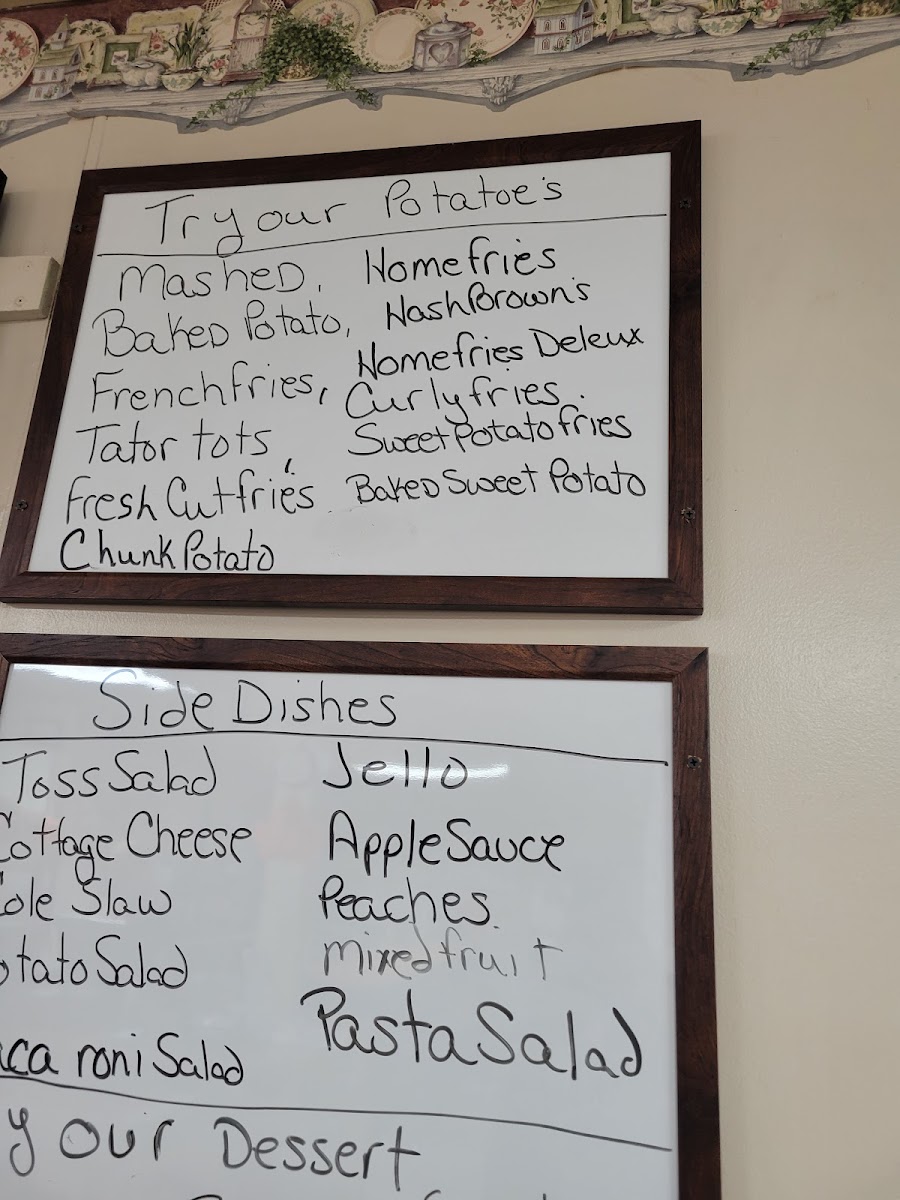 Try our Potatoe's
Mashed, Homefries
Baked Potato, HashBrown's
Frenchfries, Homefries Deleux
Tator tots, Curlyfries
Fresh Cutfries Sweet Potatofries
Chunk Potato Baked Sweet Potato
Side Dishes
Toss Salad Jello
Cottage Cheese Apple Sauce
Cole Slaw Peaches
otato Salad mixed fruit
aca roni Salad Pasta Salad
y our Dessert